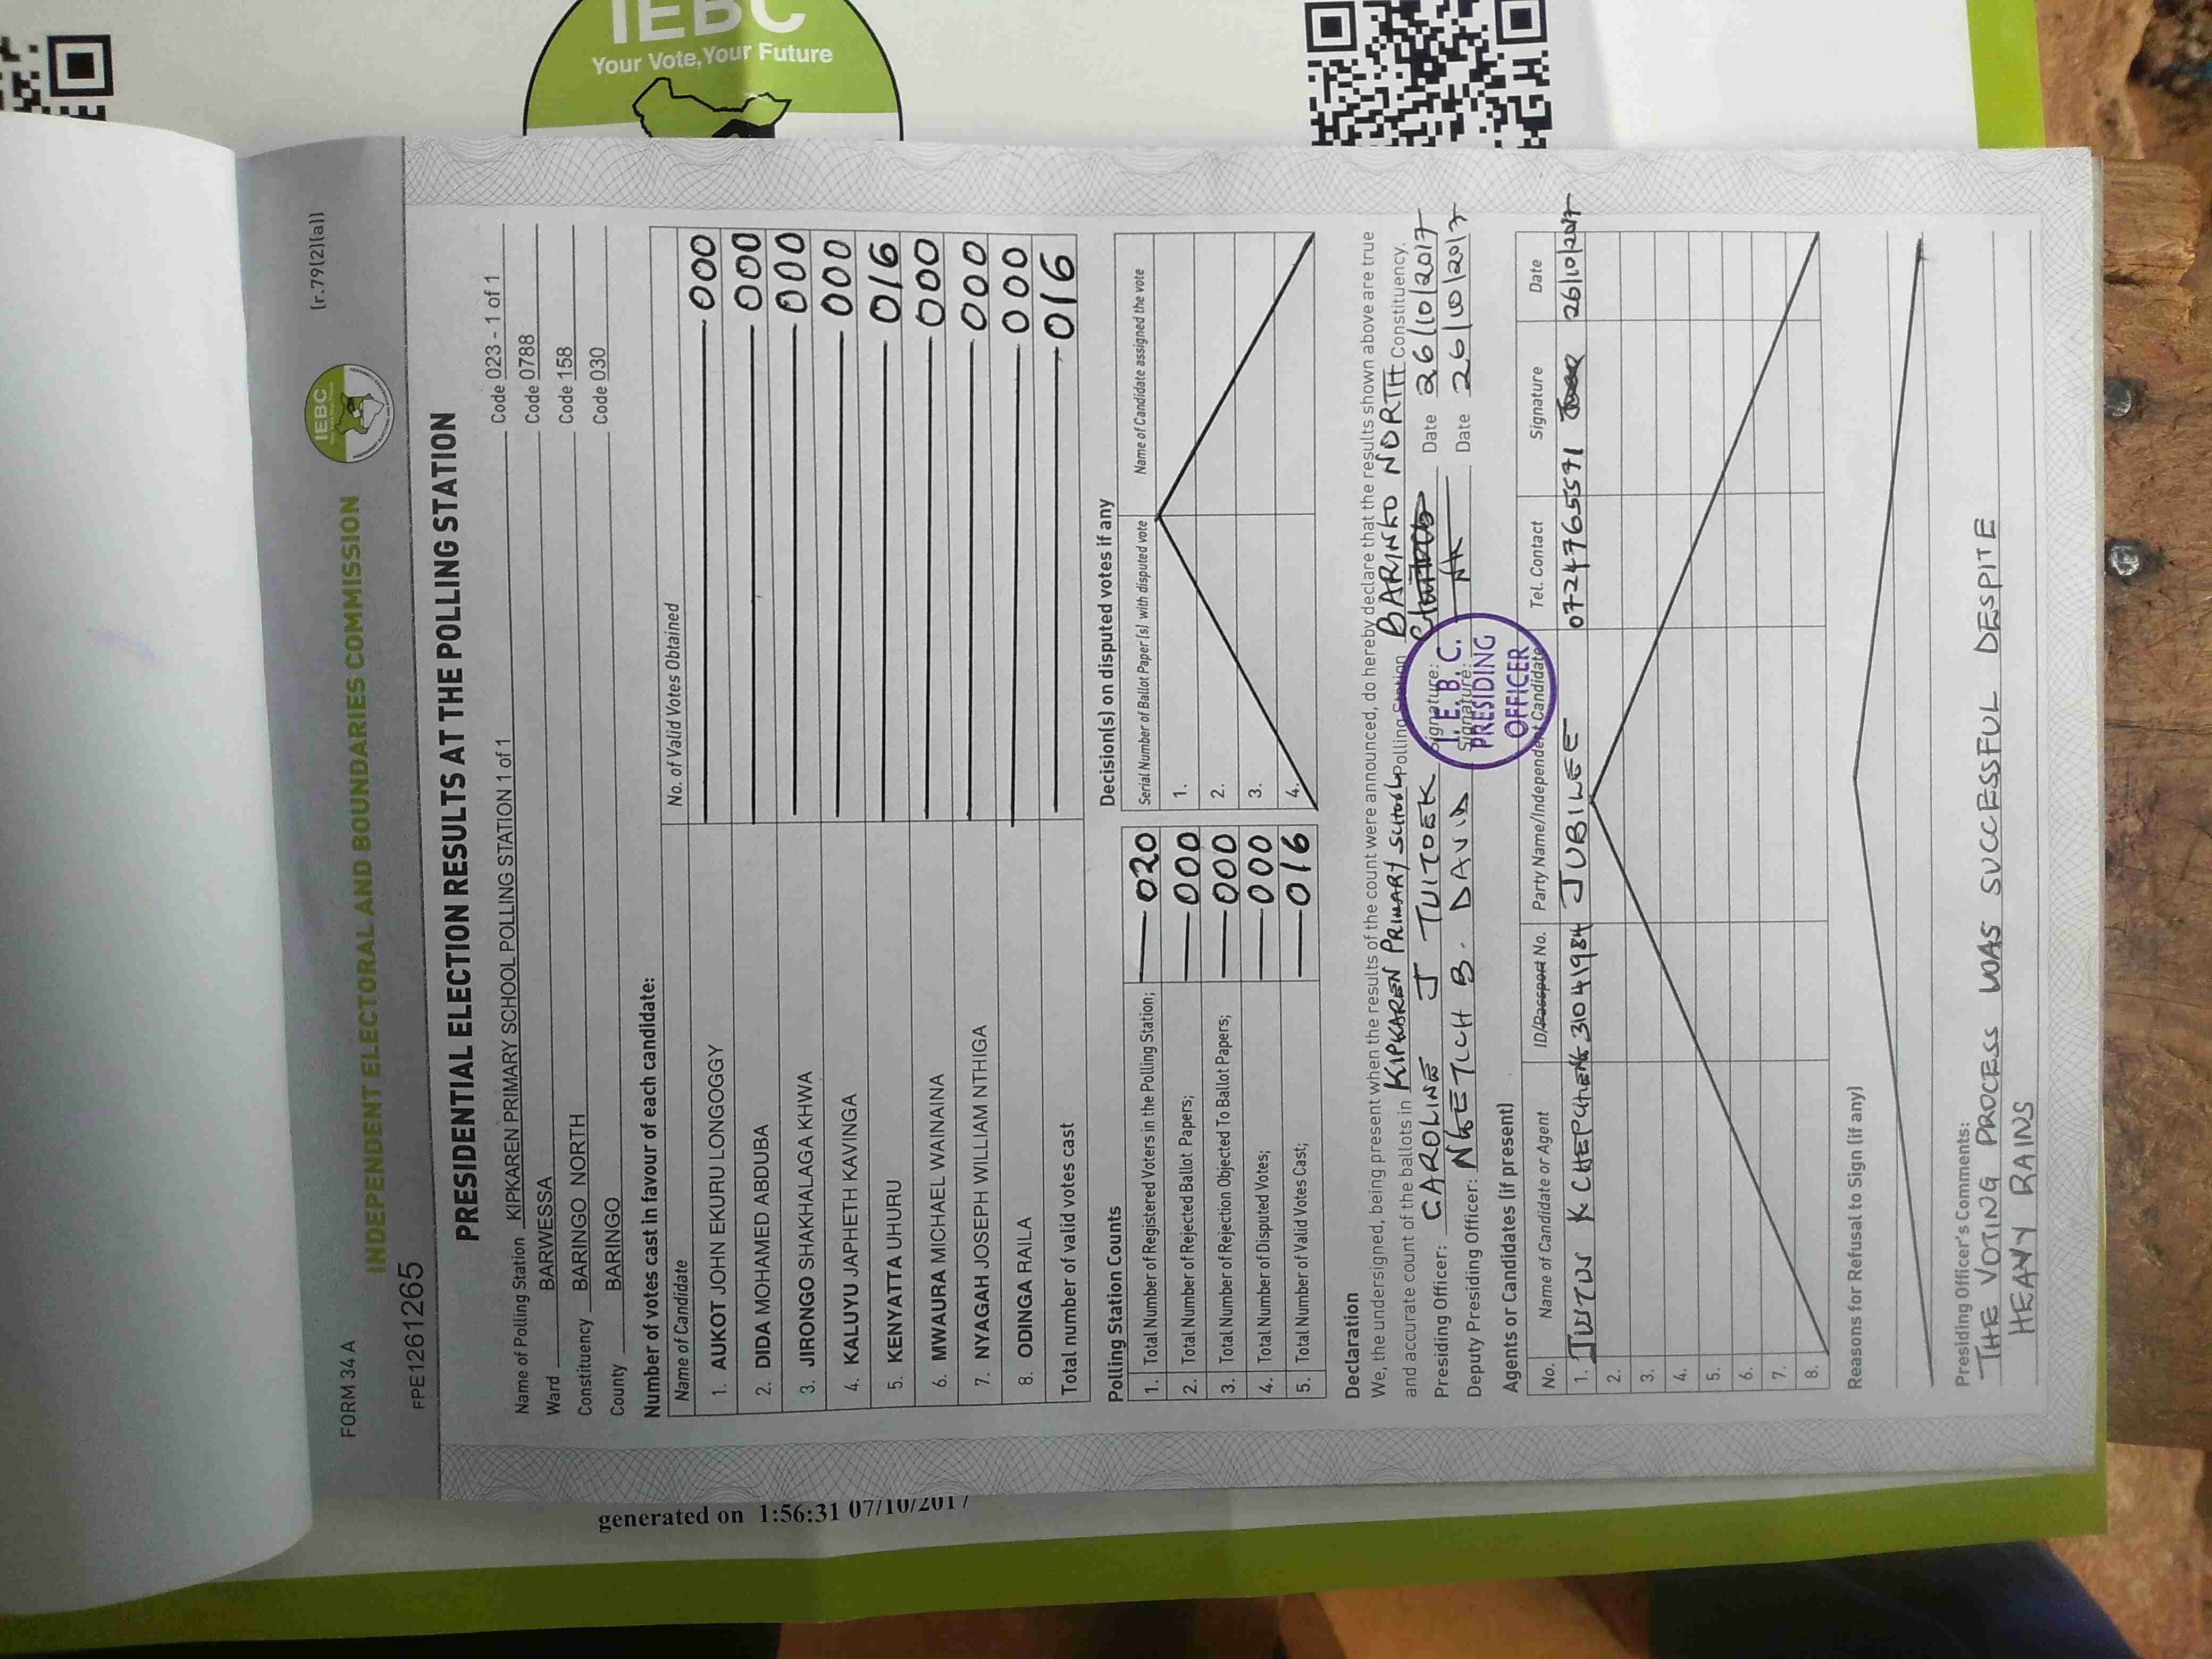 IEBC
Your Vote, Your Future
FORM 34 A
(r.79(2)(a))
IEBC
INDEPENDENT ELECTORAL AND BOUNDARIES COMMISSION
FPE1261265
PRESIDENTIAL ELECTION RESULTS AT THE POLLING STATION
Name of Polling Station KIPKAREN PRIMARY SCHOOL POLLING STATION 1 of 1 Code 023 - 1 of 1
Ward BARWESSA Code 0788
Constituency BARINGO NORTH Code 158
County BARINGO Code 030
Number of votes cast in favour of each candidate:
Name of Candidate No. of Valid Votes Obtained
1. AUKOT JOHN EKURU LONGOGGY 000
2. DIDA MOHAMED ABDUBA 000
3. JIRONGO SHAKHALAGA KHWA 000
4. KALUYU JAPHETH KAVINGA 000
5. KENYATTA UHURU 016
6. MWAURA MICHAEL WAINAINA 000
7. NYAGAH JOSEPH WILLIAM NTHIGA 000
8. ODINGA RAILA 000
Total number of valid votes cast 016
Polling Station Counts
1. Total Number of Registered Voters in the Polling Station; 020
2. Total Number of Rejected Ballot Papers; 000
3. Total Number of Rejection Objected To Ballot Papers; 000
4. Total Number of Disputed Votes; 000
5. Total Number of Valid Votes Cast; 016
Decision(s) on disputed votes if any
Serial Number of Ballot Paper(s) with disputed vote Name of Candidate assigned the vote
1.
2.
3.
4.
Declaration
We, the undersigned, being present when the results of the count were announced, do hereby declare that the results shown above are true
and accurate count of the ballots in KIPKAREN PRIMARY SCHOOL Polling Station BARINGO NORTH Constituency.
Presiding Officer: CAROLINE J TUITOEK Signature: Date 26/10/2017
Deputy Presiding Officer: NGETICH B. DAVID Signature: Date 26/10/2017
I. E. B. C.
PRESIDING
OFFICER
Agents or Candidates (if present)
No. Name of Candidate or Agent ID/Passport No. Party Name/Independent Candidate Tel. Contact Signature Date
1. K CHEPCHENG 31041984 JUBILEE 0724765571 26/10/2017
2.
3.
4.
5.
6.
7.
8.
Reasons for Refusal to Sign (if any)
Presiding Officer's Comments:
THE VOTING PROCESS WAS SUCCESSFUL DESPITE
HEAVY RAINS
generated on 1:56:31 07/10/2017